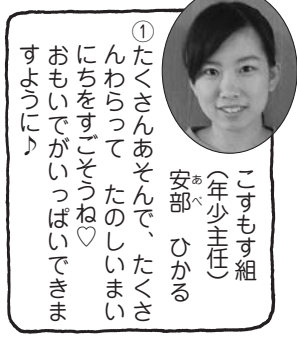 こすもす組
(年少主任)
安部 ひかる
あべ
①たくさんあそんで、たくさ
んわらって たのしいまい
にちをすごそうね♡
おもいでがいっぱいできま
すように♪